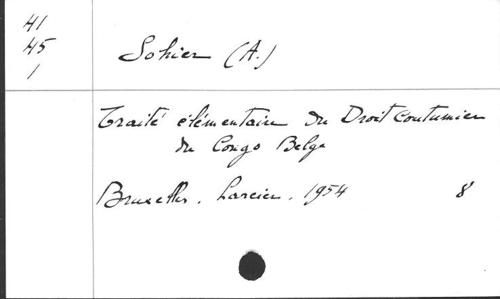 41
45
1
Sohier (A.)
Traité élémentaire du Droit Coutumier
du Congo Belge
Bruxelles. Larcier. 1954 8°